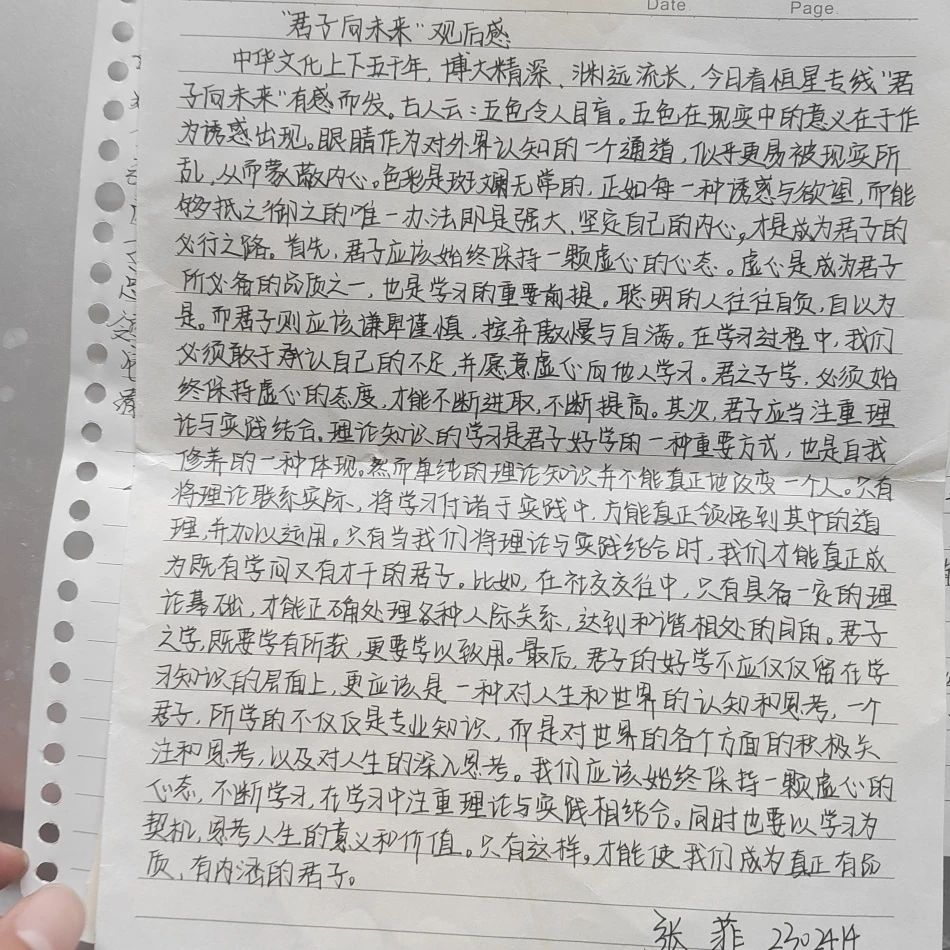 Date.
Page.
"君子向未来"观后感
中华文化上下五千年,博大精深、渊远流长,今日看恒星专线"君
子向未来"有感而发。古人云:五色令人目盲。五色在现实中的意义在于作
为诱惑出现。眼睛作为对外界认知的一个通道,似乎更易被现实所
乱,从而蒙蔽内心。色彩是斑斓无常的,正如每一种诱惑与欲望,而能
够抵之御之的唯一办法即是强大、坚定自己的内心,才是成为君子的
必行之路。首先,君子应该始终保持一颗虚心的心态。虚心是成为君子
所必备的品质之一,也是学习的重要前提。聪明的人往往自负,自以为
是。而君子则应该谦卑谨慎,摈弃傲慢与自满。在学习过程中,我们
必须敢于承认自己的不足,并愿意虚心向他人学习。君之子学,必须始
终保持虚心的态度,才能不断进取,不断提高。其次,君子应当注重理
论与实践结合。理论知识的学习是君子好学的一种重要方式,也是自我
修养的一种体现。然而单纯的理论知识并不能真正地改变一个人。只有
将理论联系实际,将学习付诸于实践中,方能真正领悟到其中的道
理,并加以运用。只有当我们将理论与实践结合时,我们才能真正成
为既有学问又有才干的君子。比如,在社交交往中,只有具备一定的理
论基础,才能正确处理各种人际关系,达到和谐相处的目的。君子
之学,既要学有所获,更要学以致用。最后,君子的好学不应仅仅留在学
习知识的层面上,更应该是一种对人生和世界的认知和思考,一个
君子,所学的不仅仅是专业知识,而是对世界的各个方面的积极关
注和思考,以及对人生的深入思考。我们应该始终保持一颗虚心的
心态,不断学习,在学习中注重理论与实践相结合。同时也要以学习为
契机,思考人生的意义和价值。只有这样,才能使我们成为真正有品
质、有内涵的君子。
张菲 2302414